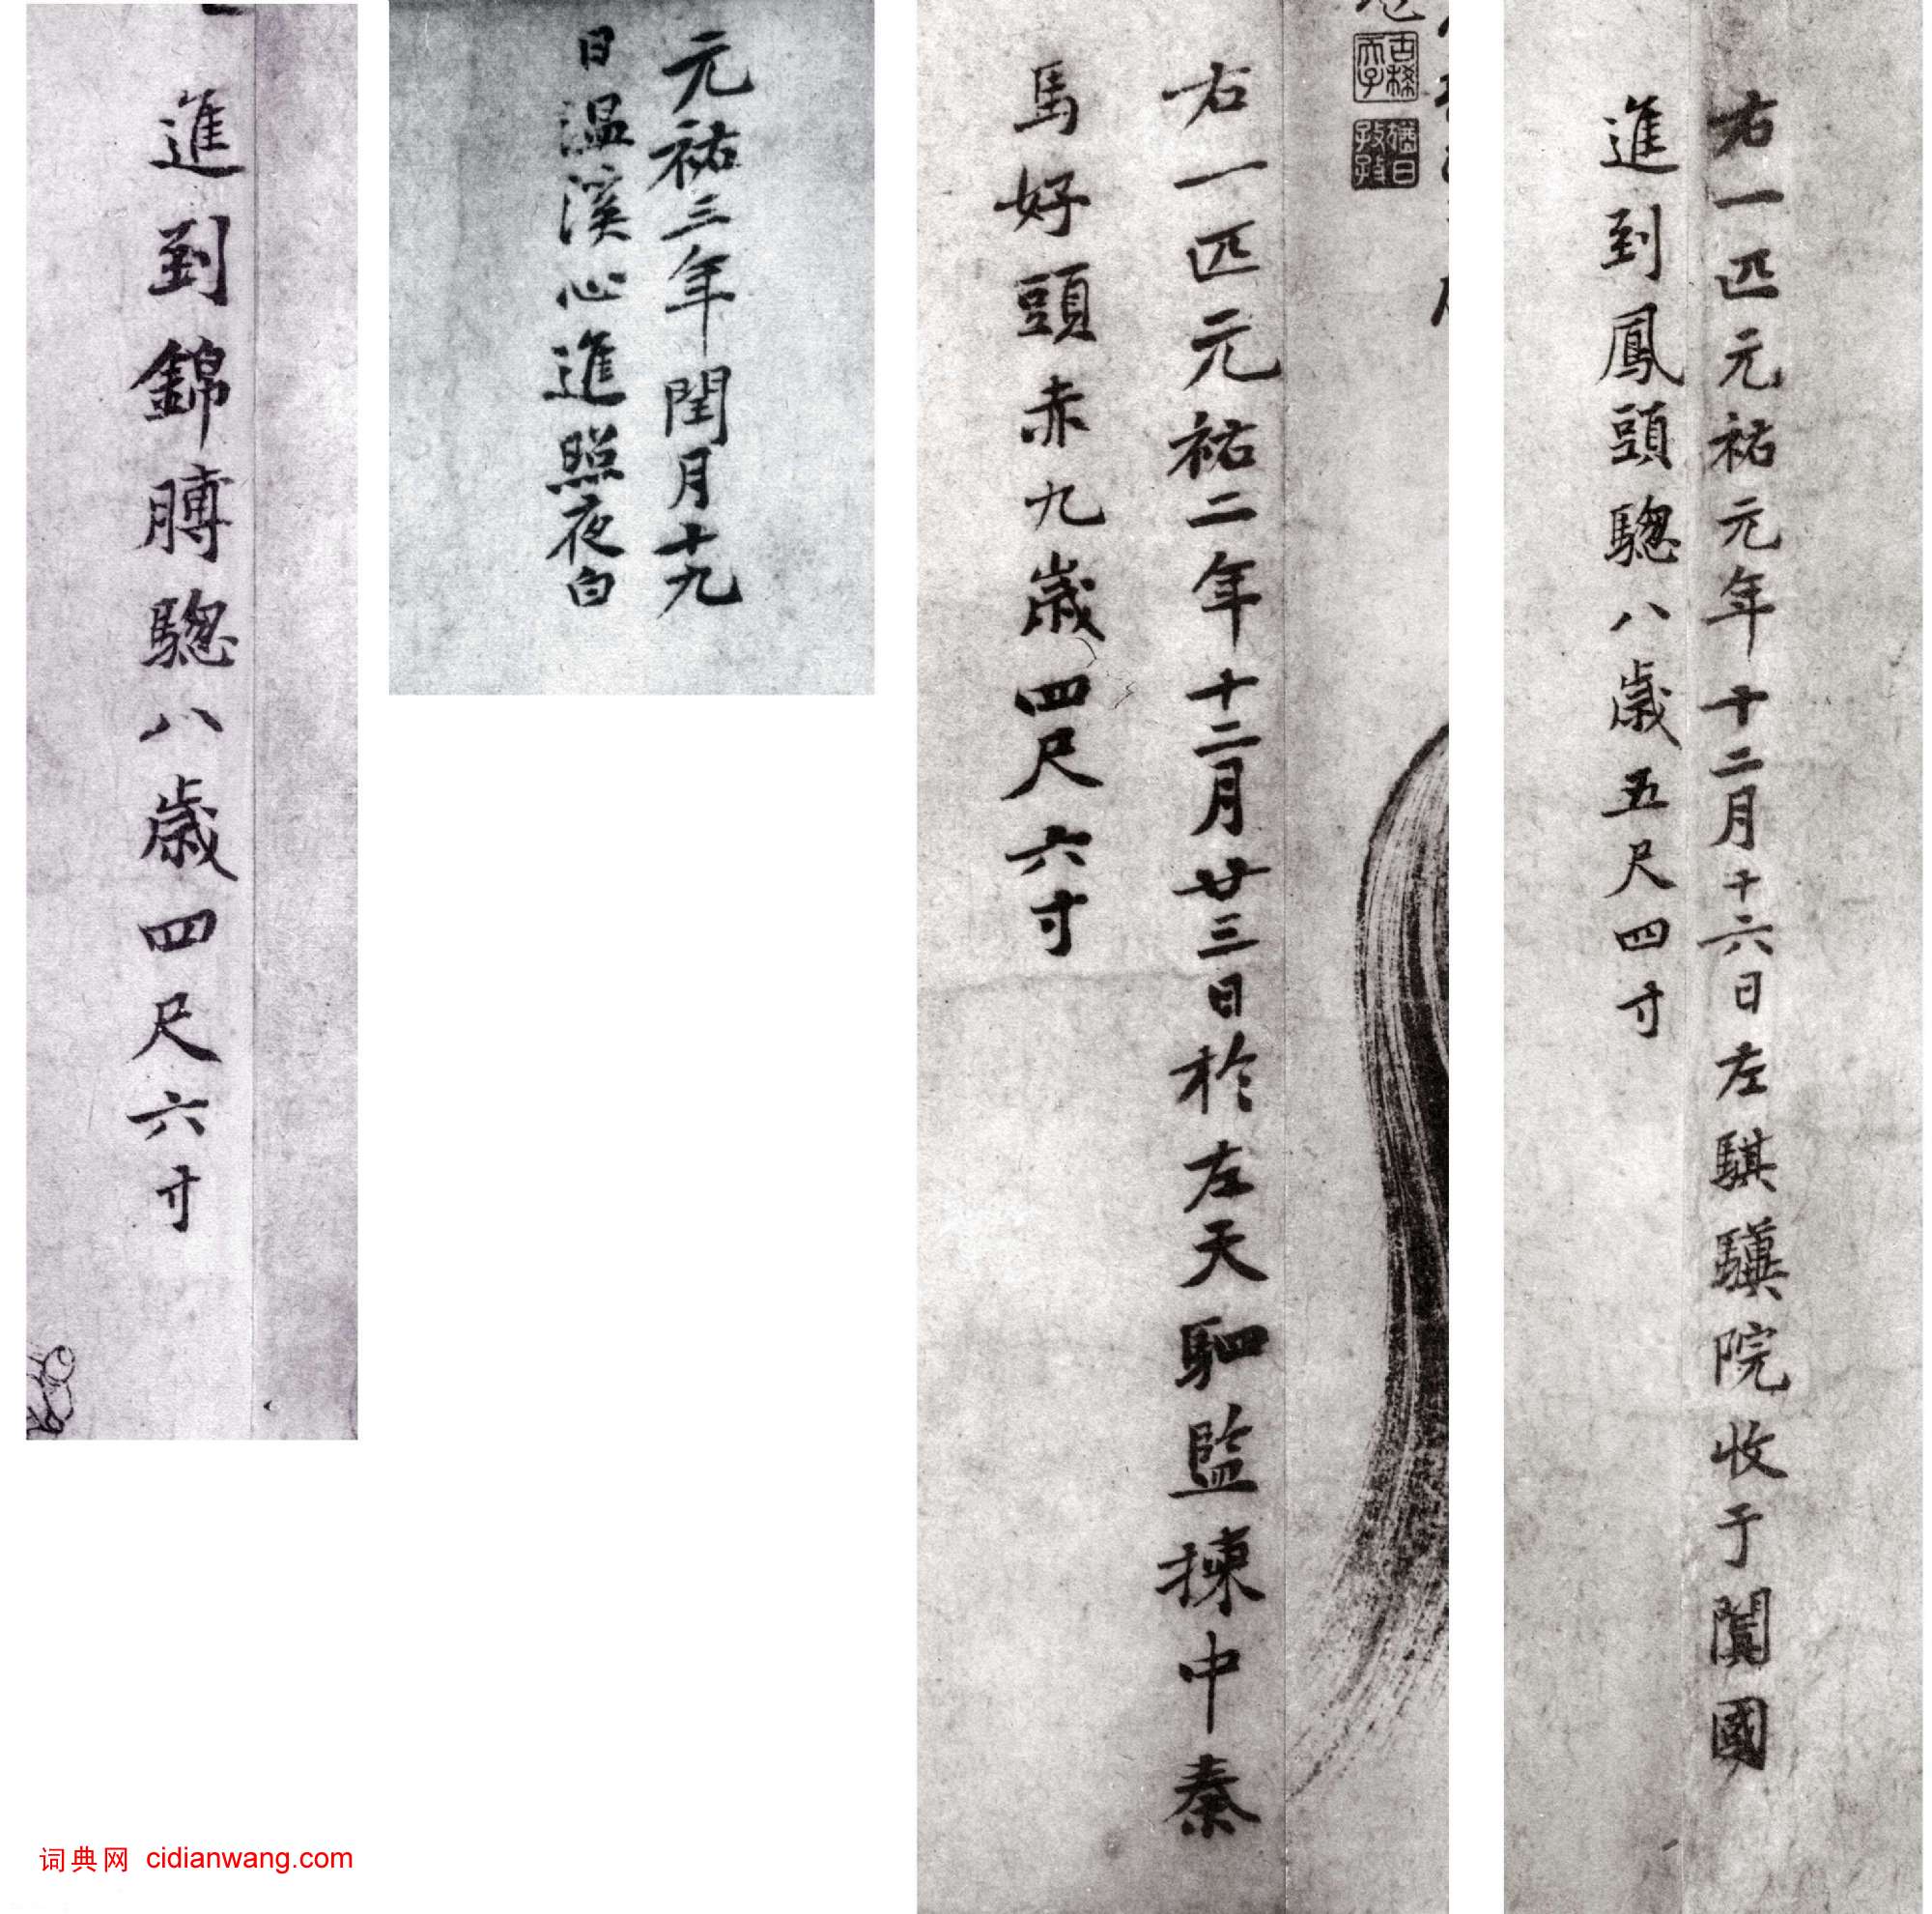 右一匹元祐元年十二月十六日左騏驥院收于闐國
進到鳳頭驄八歲五尺四寸
右一匹元祐二年十二月廿三日於左天駟監揀中秦
馬好頭赤九歲四尺六寸
元祐三年閏月十九
日温溪心進照夜白
進到錦膊驄八歲四尺六寸
词典网 cidianwang.com